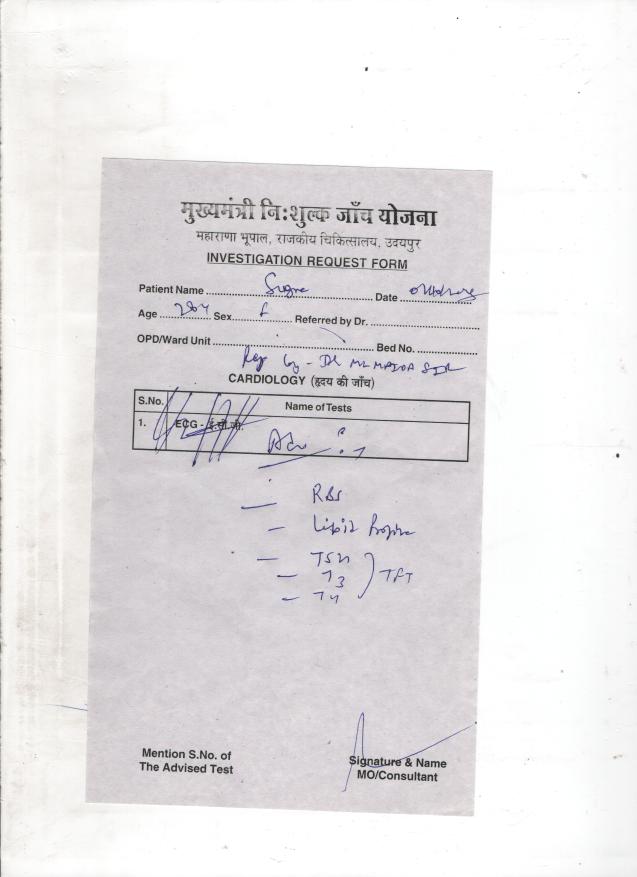 मुख्यमंत्री नि:शुल्क जाँच योजना
महाराणा भूपाल, राजकीय चिकित्सालय, उदयपुर
INVESTIGATION REQUEST FORM
Patient Name Date
Age 28y Sex f Referred by Dr.
OPD/Ward Unit Bed No.
by - DR SIR
CARDIOLOGY (हृदय की जाँच)
S.No. Name of Tests
1. ECG - ई.सी.जी.
Adv :-
— RBS
— Lipid Profile
— TSH
— T3 TFT
— T4
Mention S.No. of
The Advised Test
Signature & Name
MO/Consultant